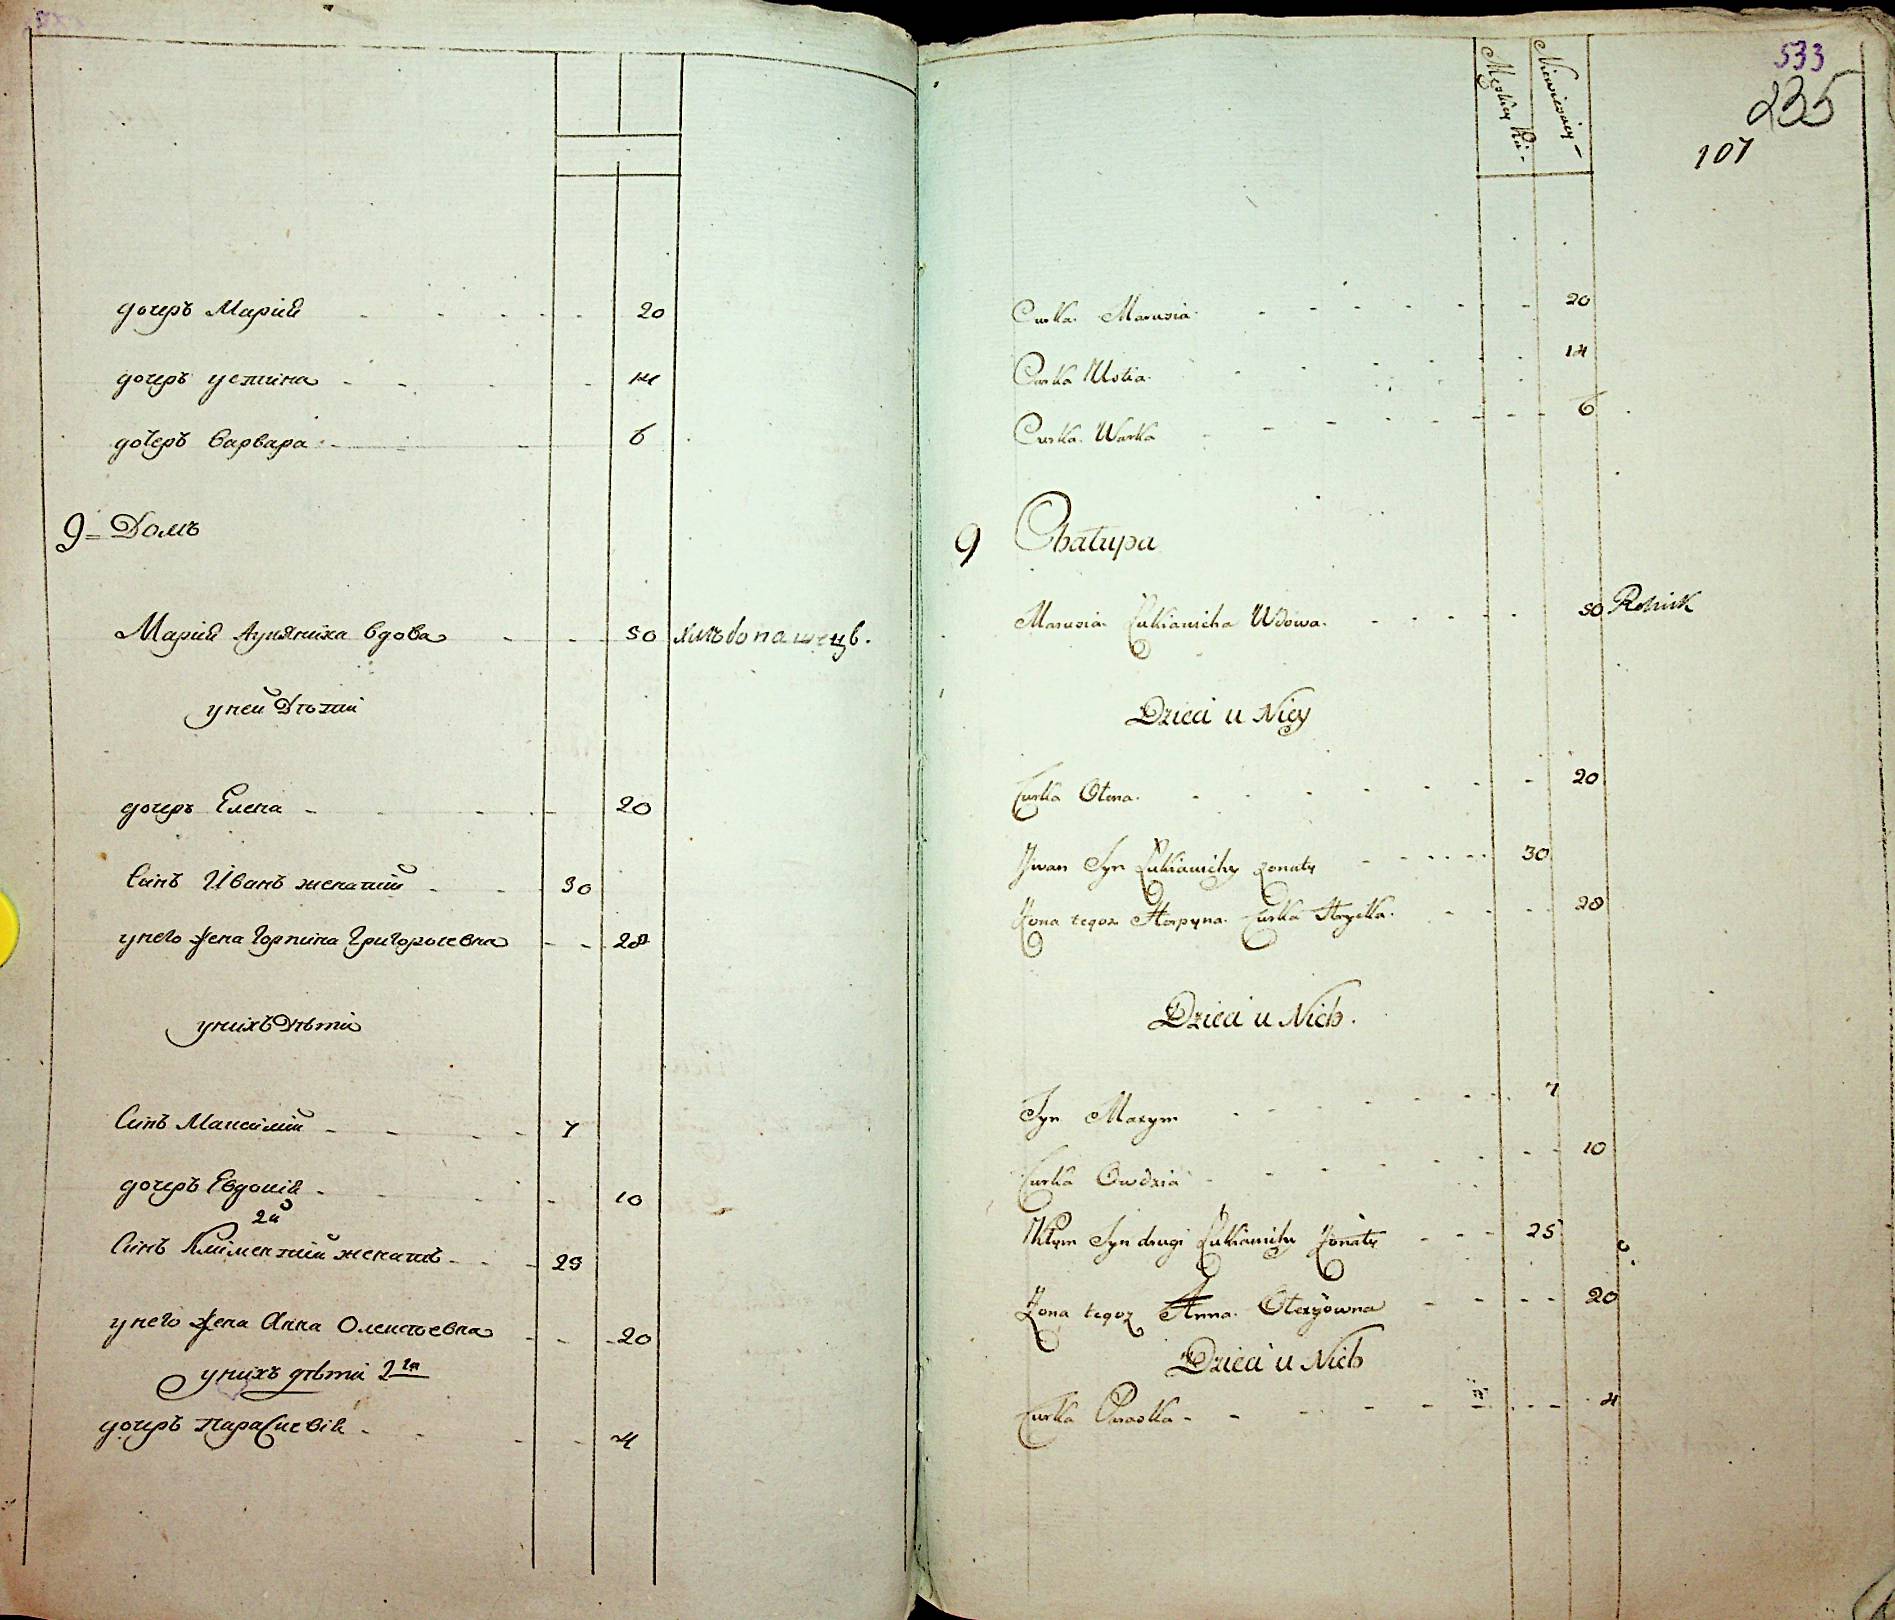 дочеръ Марія 20
дочеръ устина 14
дочеръ варвара 6
9 = Домъ
Марія Лукяниха вдова 50 хлѣбопашецъ.
у ней Дѣти
дочеръ Елена 20
Синъ Иванъ женатий 30
у него жена Горпина Григорьевна 28
у нихъ Дѣти
Синъ Максимій 7
дочеръ Евдокія 10
2й
Синъ Климентий женатъ 25
у него жена Анна Олексѣевна 20
у нихъ дѣти 2га
дочеръ Параскевія 4
Męskiey
Niewiesciey
533
235
107
Curka Marusia 20
Curka Ustia 14
Curka Warka 6
9 Chałupa
Marusia Łukianicha Wdowa 50 Rolnik
Dzieci u Niey
Curka Ołena 20
Jwan Syn Łukianichy żonaty 30
Żona tegoż Horpyna Curka Hryćka 28
Dzieci u Nich
Syn Maxym 7
Curka Owdzia 10
Kłym Syn drugi Łukianichy Żonaty 25
Żona tegoż Anna Ołexyowna 20
Dzieci u Nich
Curka Paraska 4